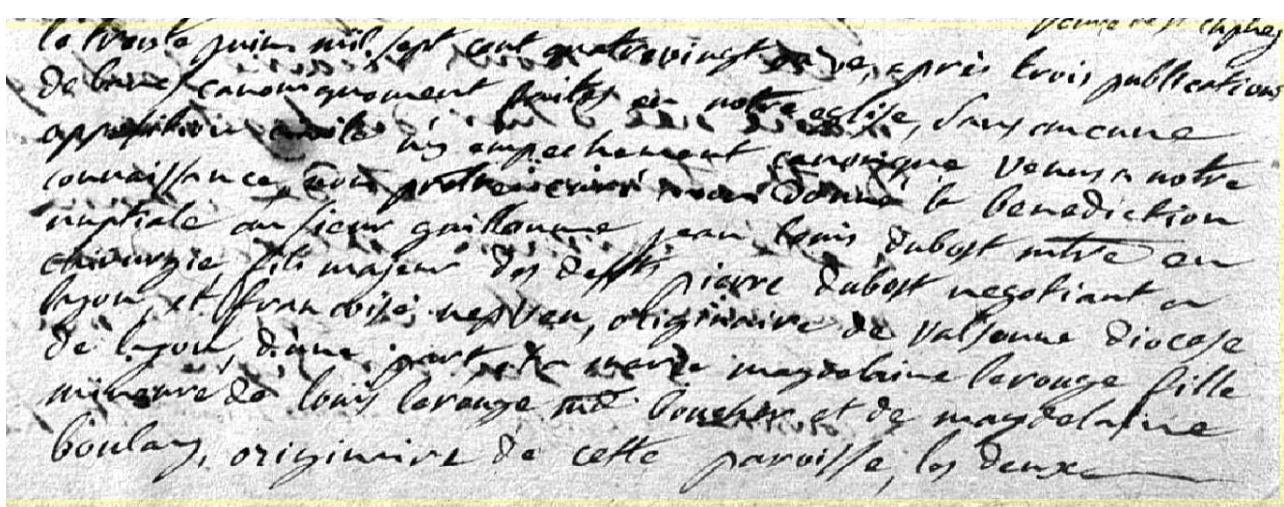 le trente juin mil sept cent quatrevingt onze, après trois publications
de bans canoniquement faites en notre eglise, sans aucune
opposition civile n'y empechement canonique venus a notre
connaissance, nous pretre curé avons donné la benediction
nuptiale au sieur guillaume jean louis dubost mtre en
chirurgie, fils majeur des defts pierre dubost negotiant a
lyon, et francoise nepveu, originaire de valsonne diocese
de lyon, d'une part et a marie magdelaine lerouge fille
mineure de louis lerouge md boucher et de magdelaine
boulay, originaire de cette paroisse, les deux